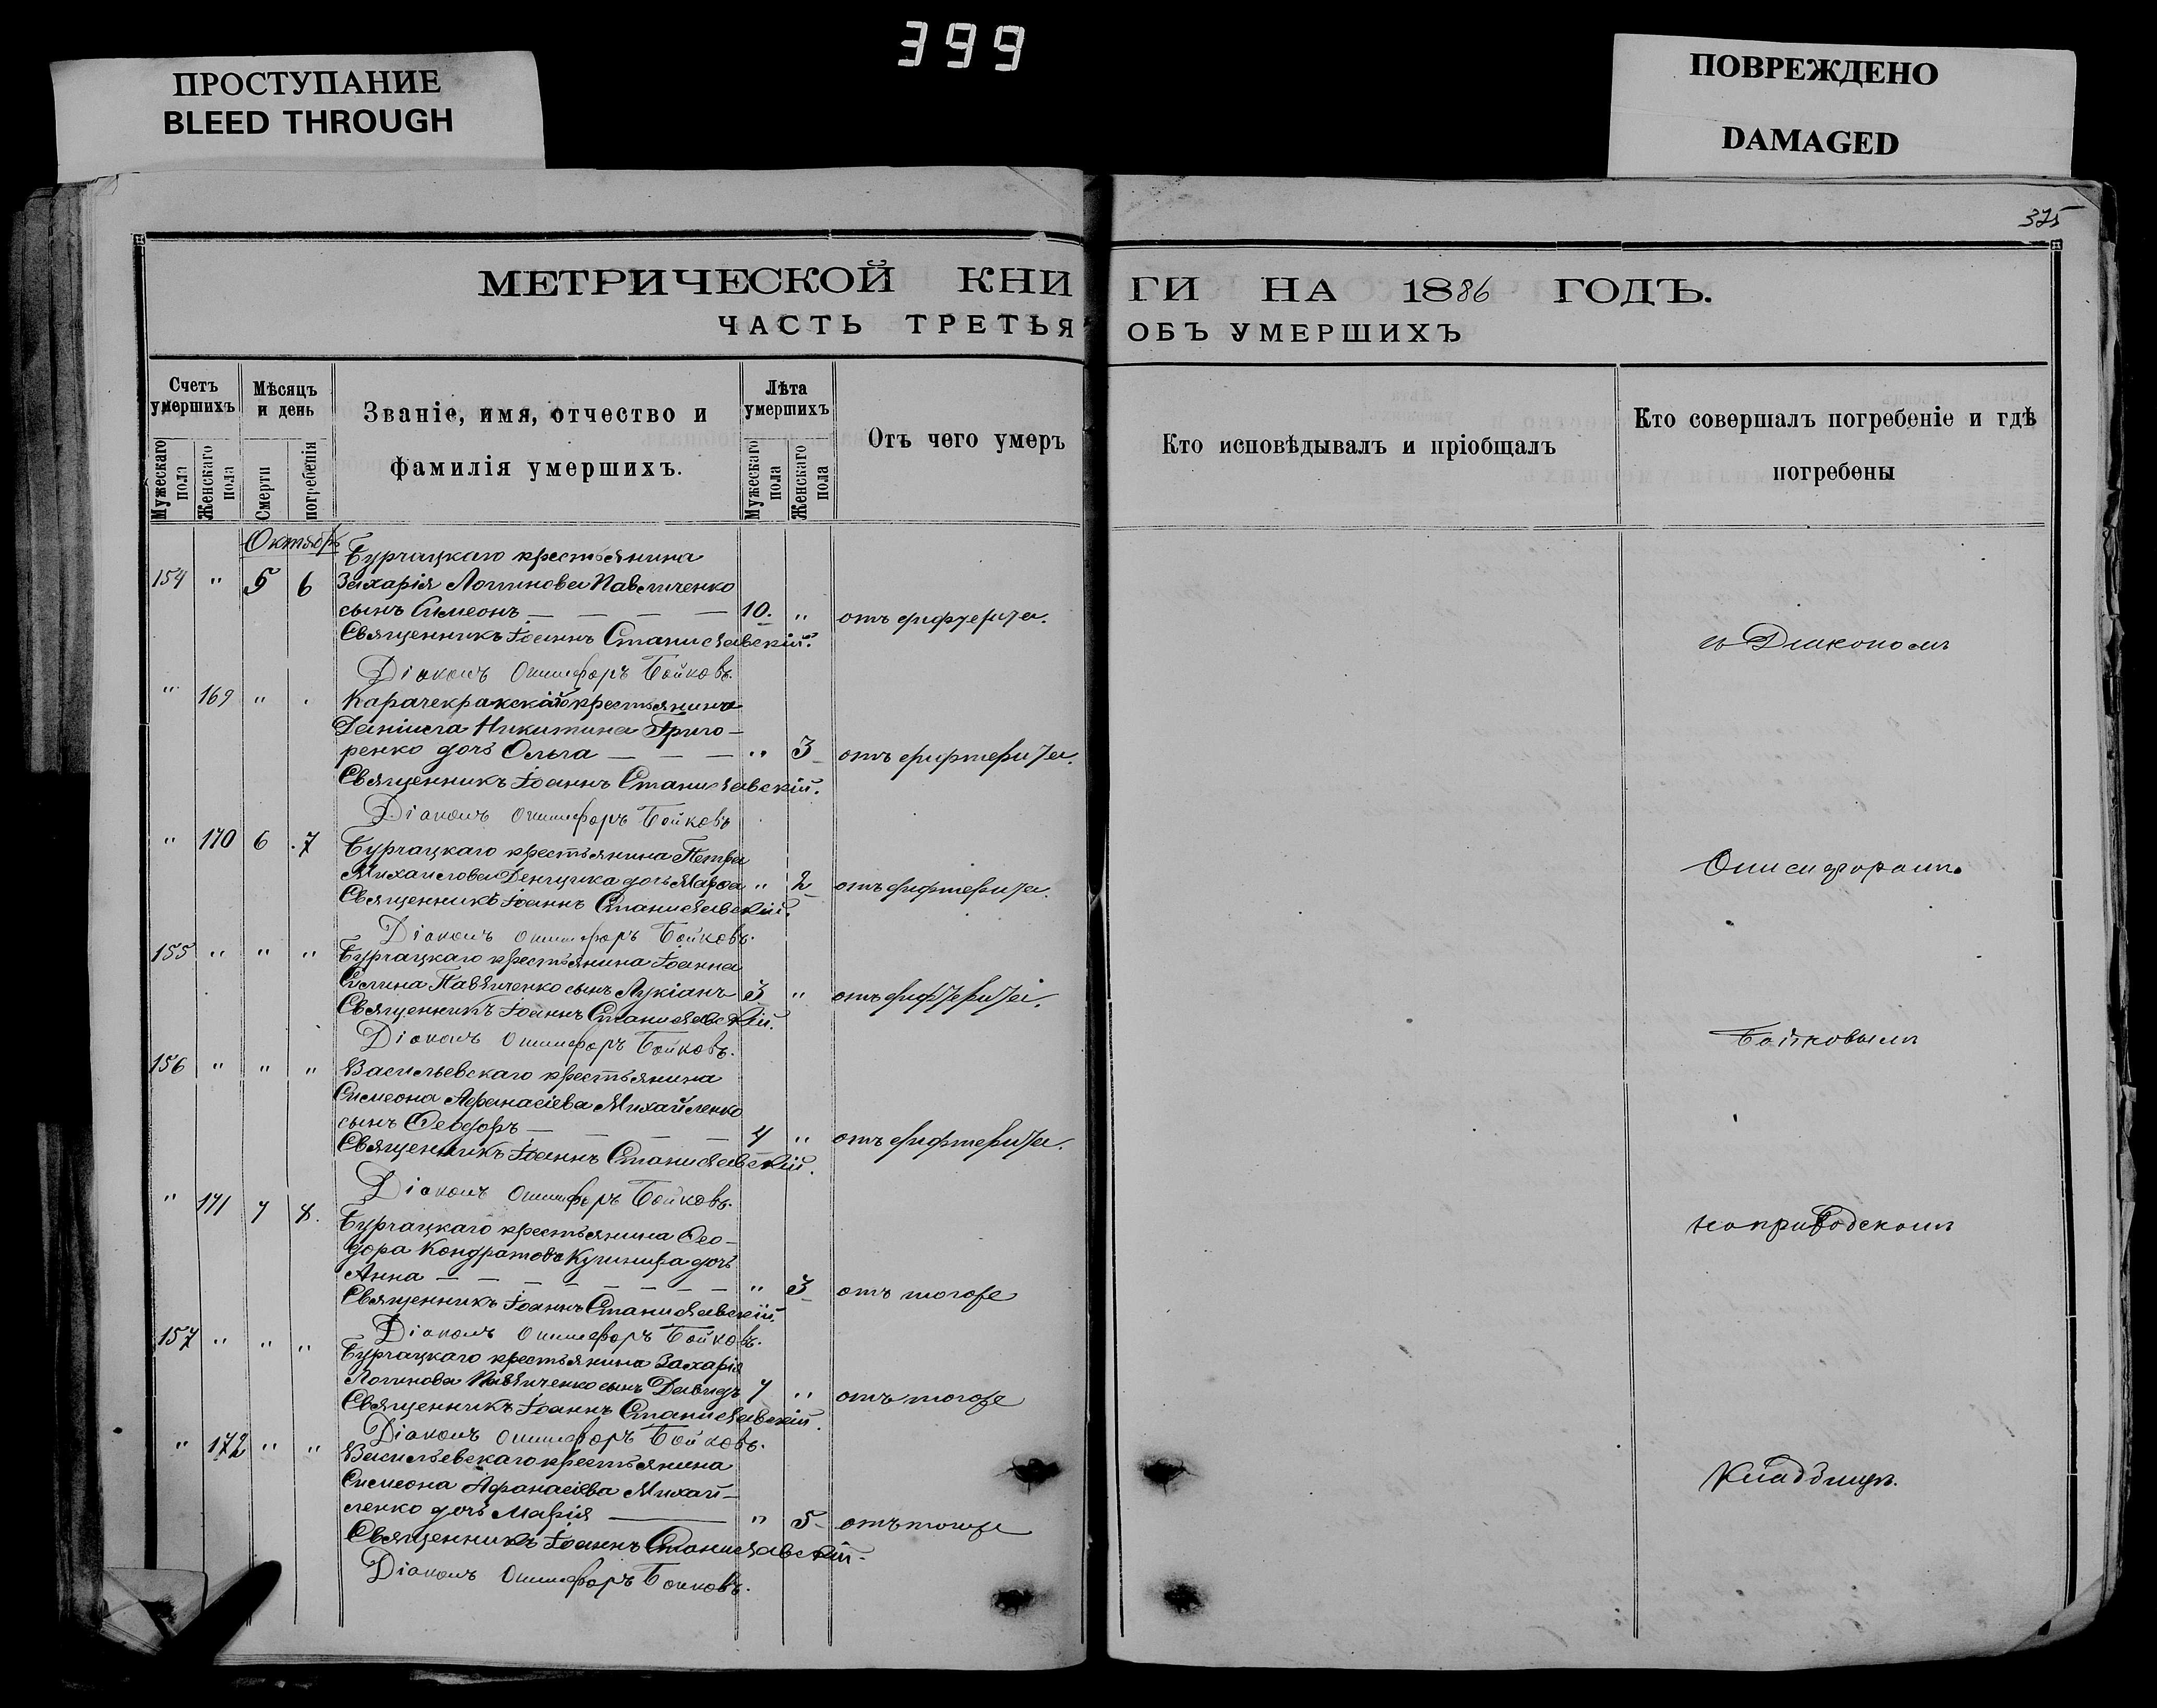 399
ПРОСТУПАНИЕ
BLEED THROUGH
ПОВРЕЖДЕНО
DAMAGED
375
МЕТРИЧЕСКОЙ КНИГИ НА 1886 ГОДЪ.
ЧАСТЬ ТРЕТЬЯ ОБЪ УМЕРШИХЪ
Счетъ умершихъ
Мужескаго пола
Женскаго пола
Мѣсяцъ и день
Смерти
погребенія
Званіе, имя, отчество и
фамилія умершихъ.
Лѣта умершихъ
Мужескаго пола
Женскаго пола
Отъ чего умеръ
Кто исповѣдывалъ и пріобщалъ
Кто совершалъ погребеніе и гдѣ
погребены
Октябрь
Бурчацкаго крестьянина
154 " 5 6 Захарія Логинова Павличенко
сынъ Симеонъ — — — — 10. " отъ дифтерита.
Священникъ Іоаннъ Станиславскій.
съ Діакономъ
Діаконъ Онисифоръ Бойковъ.
" 169 " . Карачекракскаго крестьянина
Даніила Никитина Григо-
ренко дочь Ольга — — — " 3 отъ дифтерита.
Священникъ Іоаннъ Станиславскій.
Діаконъ Онисифоръ Бойковъ
" 170 6 7 Бурчацкаго крестьянина Петра
Михаилова Денщика дочь Марѳа " 2 отъ дифтерита.
Онисифоромъ
Священникъ Іоаннъ Станиславскій.
Діаконъ Онисифоръ Бойковъ.
155 " " " Бурчацкаго крестьянина Іоанна
Павличенко сынъ Лукіанъ 3 " отъ дифтерита.
Священникъ Іоаннъ Станиславскій.
Бойковымъ
Діаконъ Онисифоръ Бойковъ.
156 " " " Васильевскаго крестьянина
Симеона Аѳанасіева Михайленко
сынъ Ѳеодоръ — — — — 4 " отъ дифтерита.
Священникъ Іоаннъ Станиславскій.
Діаконъ Онисифоръ Бойковъ.
" 171 7 8. Бурчацкаго крестьянина Ѳео-
на приходскомъ
дора Кондратова Кушнира дочь
Анна — — — — — — — " 3 отъ тогоже
Священникъ Іоаннъ Станиславскій.
Діаконъ Онисифоръ Бойковъ.
157 " " " Бурчацкаго крестьянина Захарія
Логинова Павличенко сынъ Давидъ 7 " отъ тогоже
Священникъ Іоаннъ Станиславскій.
Діаконъ Онисифоръ Бойковъ.
" 172 " " Васильевскаго крестьянина
Симеона Аѳанасіева Михай-
кладбищѣ.
ленко дочь Марія — " 5 отъ тогоже
Священникъ Іоаннъ Станиславскій.
Діаконъ Онисифоръ Бойковъ.